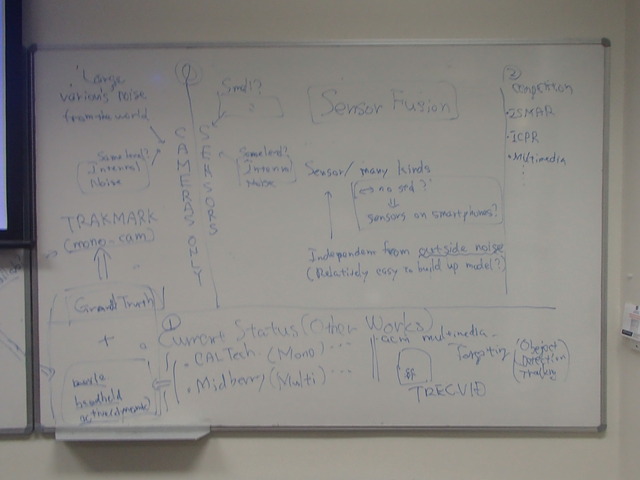 Large
various noise
from the world
Same level?
Internal
Noise
TRAKMARK
(mono-cam)
Ground Truth
+
handheld
②
CAMERAS ONLY
SENSORS
Small?
?
Same level?
Internal
Noise
Sensor Fusion
Sensor/many kinds
↔ no std?
⇓
sensors on smartphones?
Independent from outside noise
(Relatively easy to build up model?)
③
Competition
・ISMAR
・ICPR
・Multimedia
①
Current Status (Other Works)
・CALTech (Mono) ...
・Midberry (Multi) ...
・acm multimedia
TRECVID
Object
Detection
Tracking